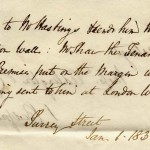 to Mr Hastings sends him
on Wall: Mr Shaw the Tenan
Premise put on the Margin
ing sent to him at London W
Surrey Street
Jan 1. 183